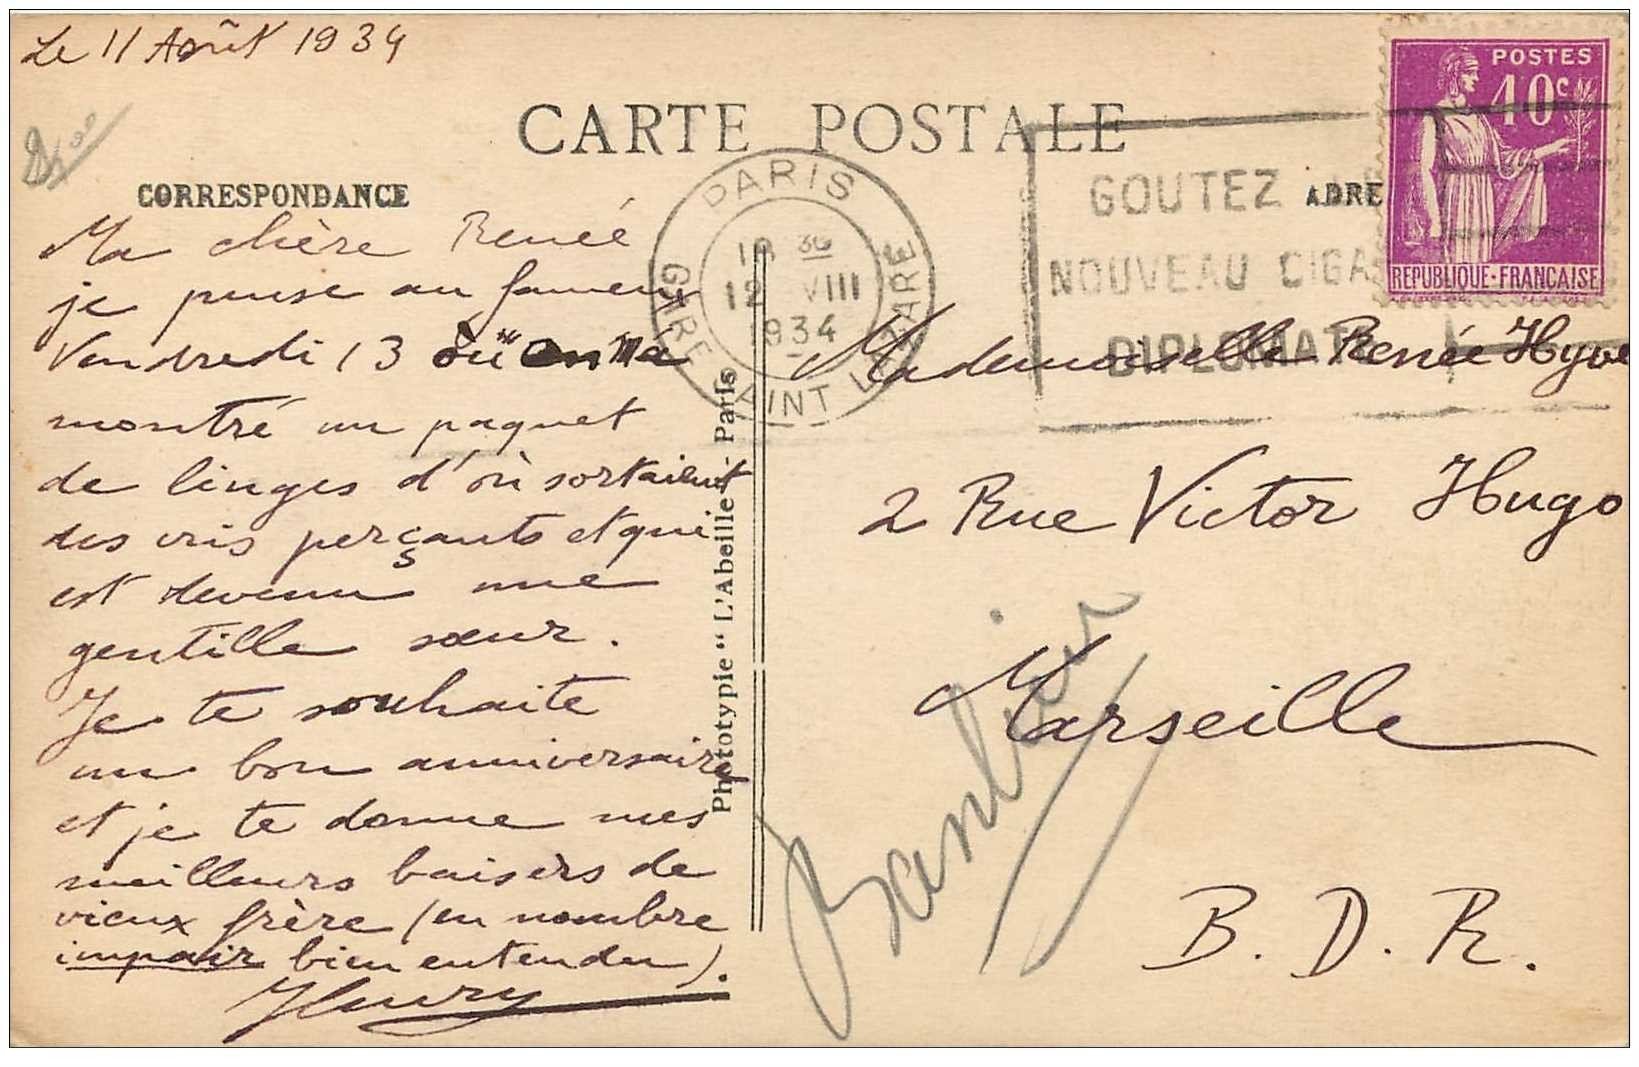 Le 11 Août 1934
CARTE POSTALE
CORRESPONDANCE
ADRE
POSTES
40c
REPUBLIQUE·FRANCAISE
PARIS
GARE SAINT LAZARE
12 VIII
1934
GOUTEZ
NOUVEAU CIGA
DIPLOMATE
Ma chère Renée
je pense au fameux
Vendredi 13 où on m'a
montré un paquet
de linges d'où sortaient
des cris perçants et qui
est devenu une
gentille sœur.
Je te souhaite
un bon anniversaire
et je te donne mes
meilleurs baisers de
vieux frère (en nombre
impair bien entendu).
Henry
Phototypie "L'Abeille" - Paris
Mademoiselle Renée Hyve
2 Rue Victor Hugo
Marseille
B. D. R.